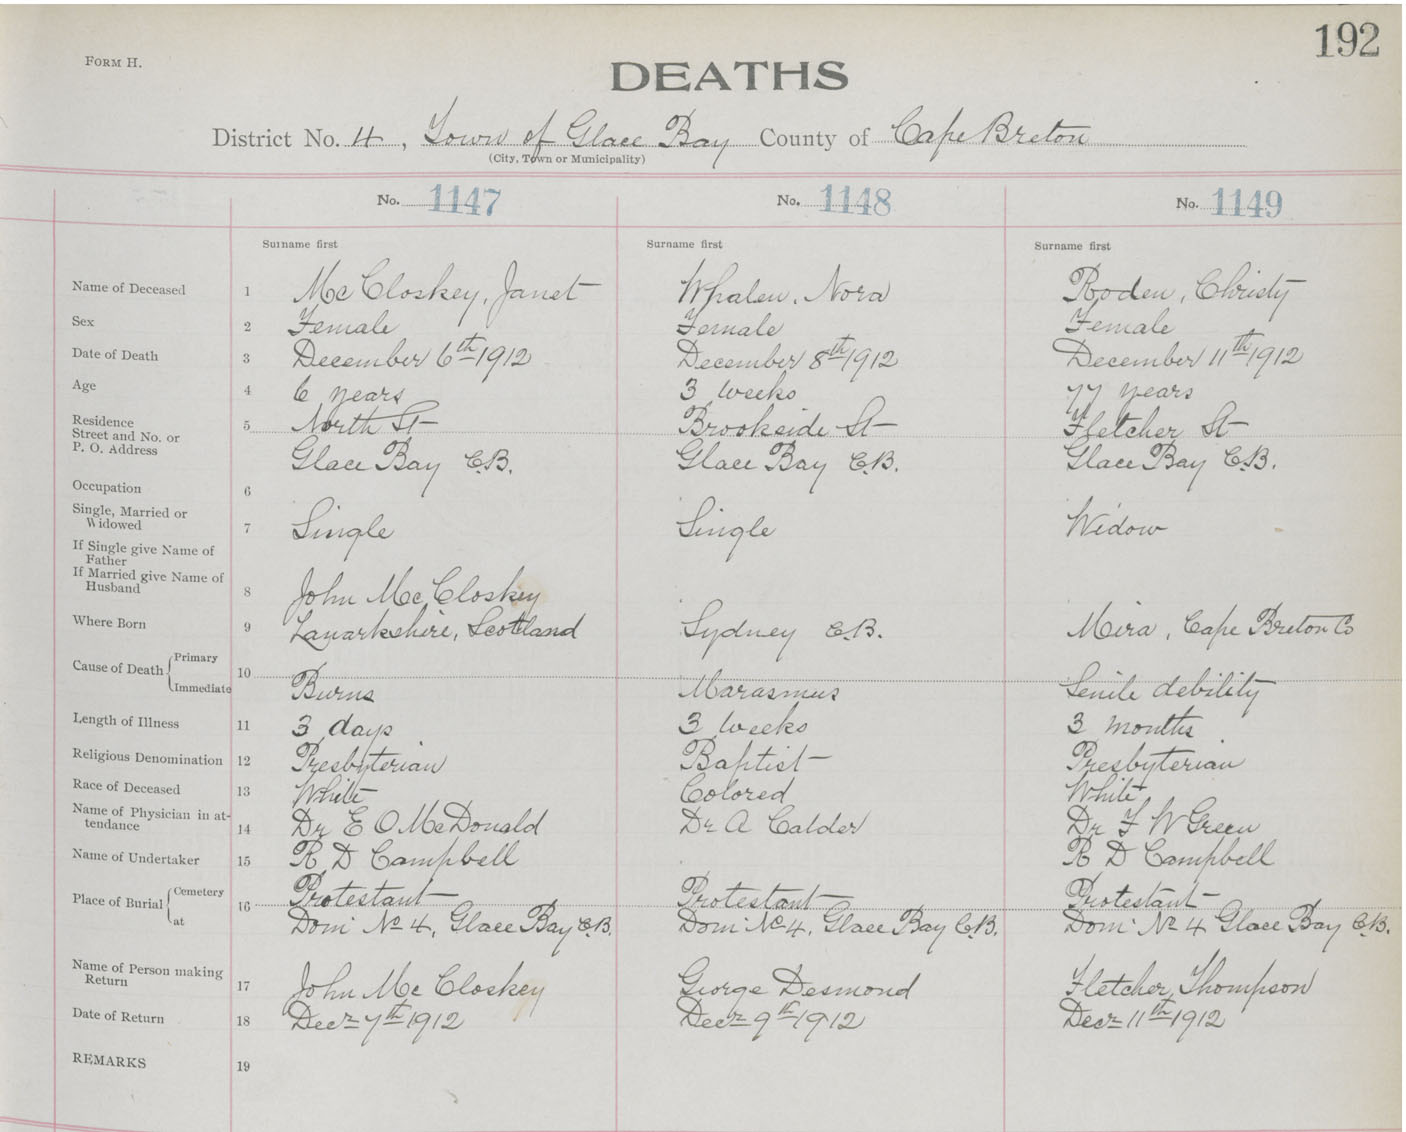 192
FORM H.
DEATHS
District No. 4, Town of Glace Bay County of Cape Breton
(City, Town or Municipality)
No. 1147 No. 1148 No. 1149
Surname first Surname first Surname first
Name of Deceased 1 McCloskey, Janet Whalen, Nora Roden, Christy
Sex 2 Female Female Female
Date of Death 3 December 6th 1912 December 8th 1912 December 11th 1912
Age 4 6 years 3 weeks 77 years
Residence
Street and No. or 5 North St Brookside St Fletcher St
P. O. Address Glace Bay C.B. Glace Bay C.B. Glace Bay C.B.
Occupation 6
Single, Married or
Widowed 7 Single Single Widow
If Single give Name of
Father
If Married give Name of
Husband 8 John McCloskey
Where Born 9 Lanarkshire, Scotland Sydney C.B. Mira, Cape Breton Co
Cause of Death Primary 10
Immediate Burns Marasmus Senile debility
Length of Illness 11 3 days 3 weeks 3 months
Religious Denomination 12 Presbyterian Baptist Presbyterian
Race of Deceased 13 White Colored White
Name of Physician in at-
tendance 14 Dr E O McDonald Dr A Calder Dr F W Green
Name of Undertaker 15 R D Campbell R D Campbell
Place of Burial Cemetery 16 Protestant Protestant Protestant
at Dom' No 4, Glace Bay C.B. Dom' No 4, Glace Bay C.B. Dom' No 4 Glace Bay C.B.
Name of Person making
Return 17 John McCloskey George Desmond Fletcher Thompson
Date of Return 18 Decr 7th 1912 Decr 9th 1912 Decr 11th 1912
REMARKS 19